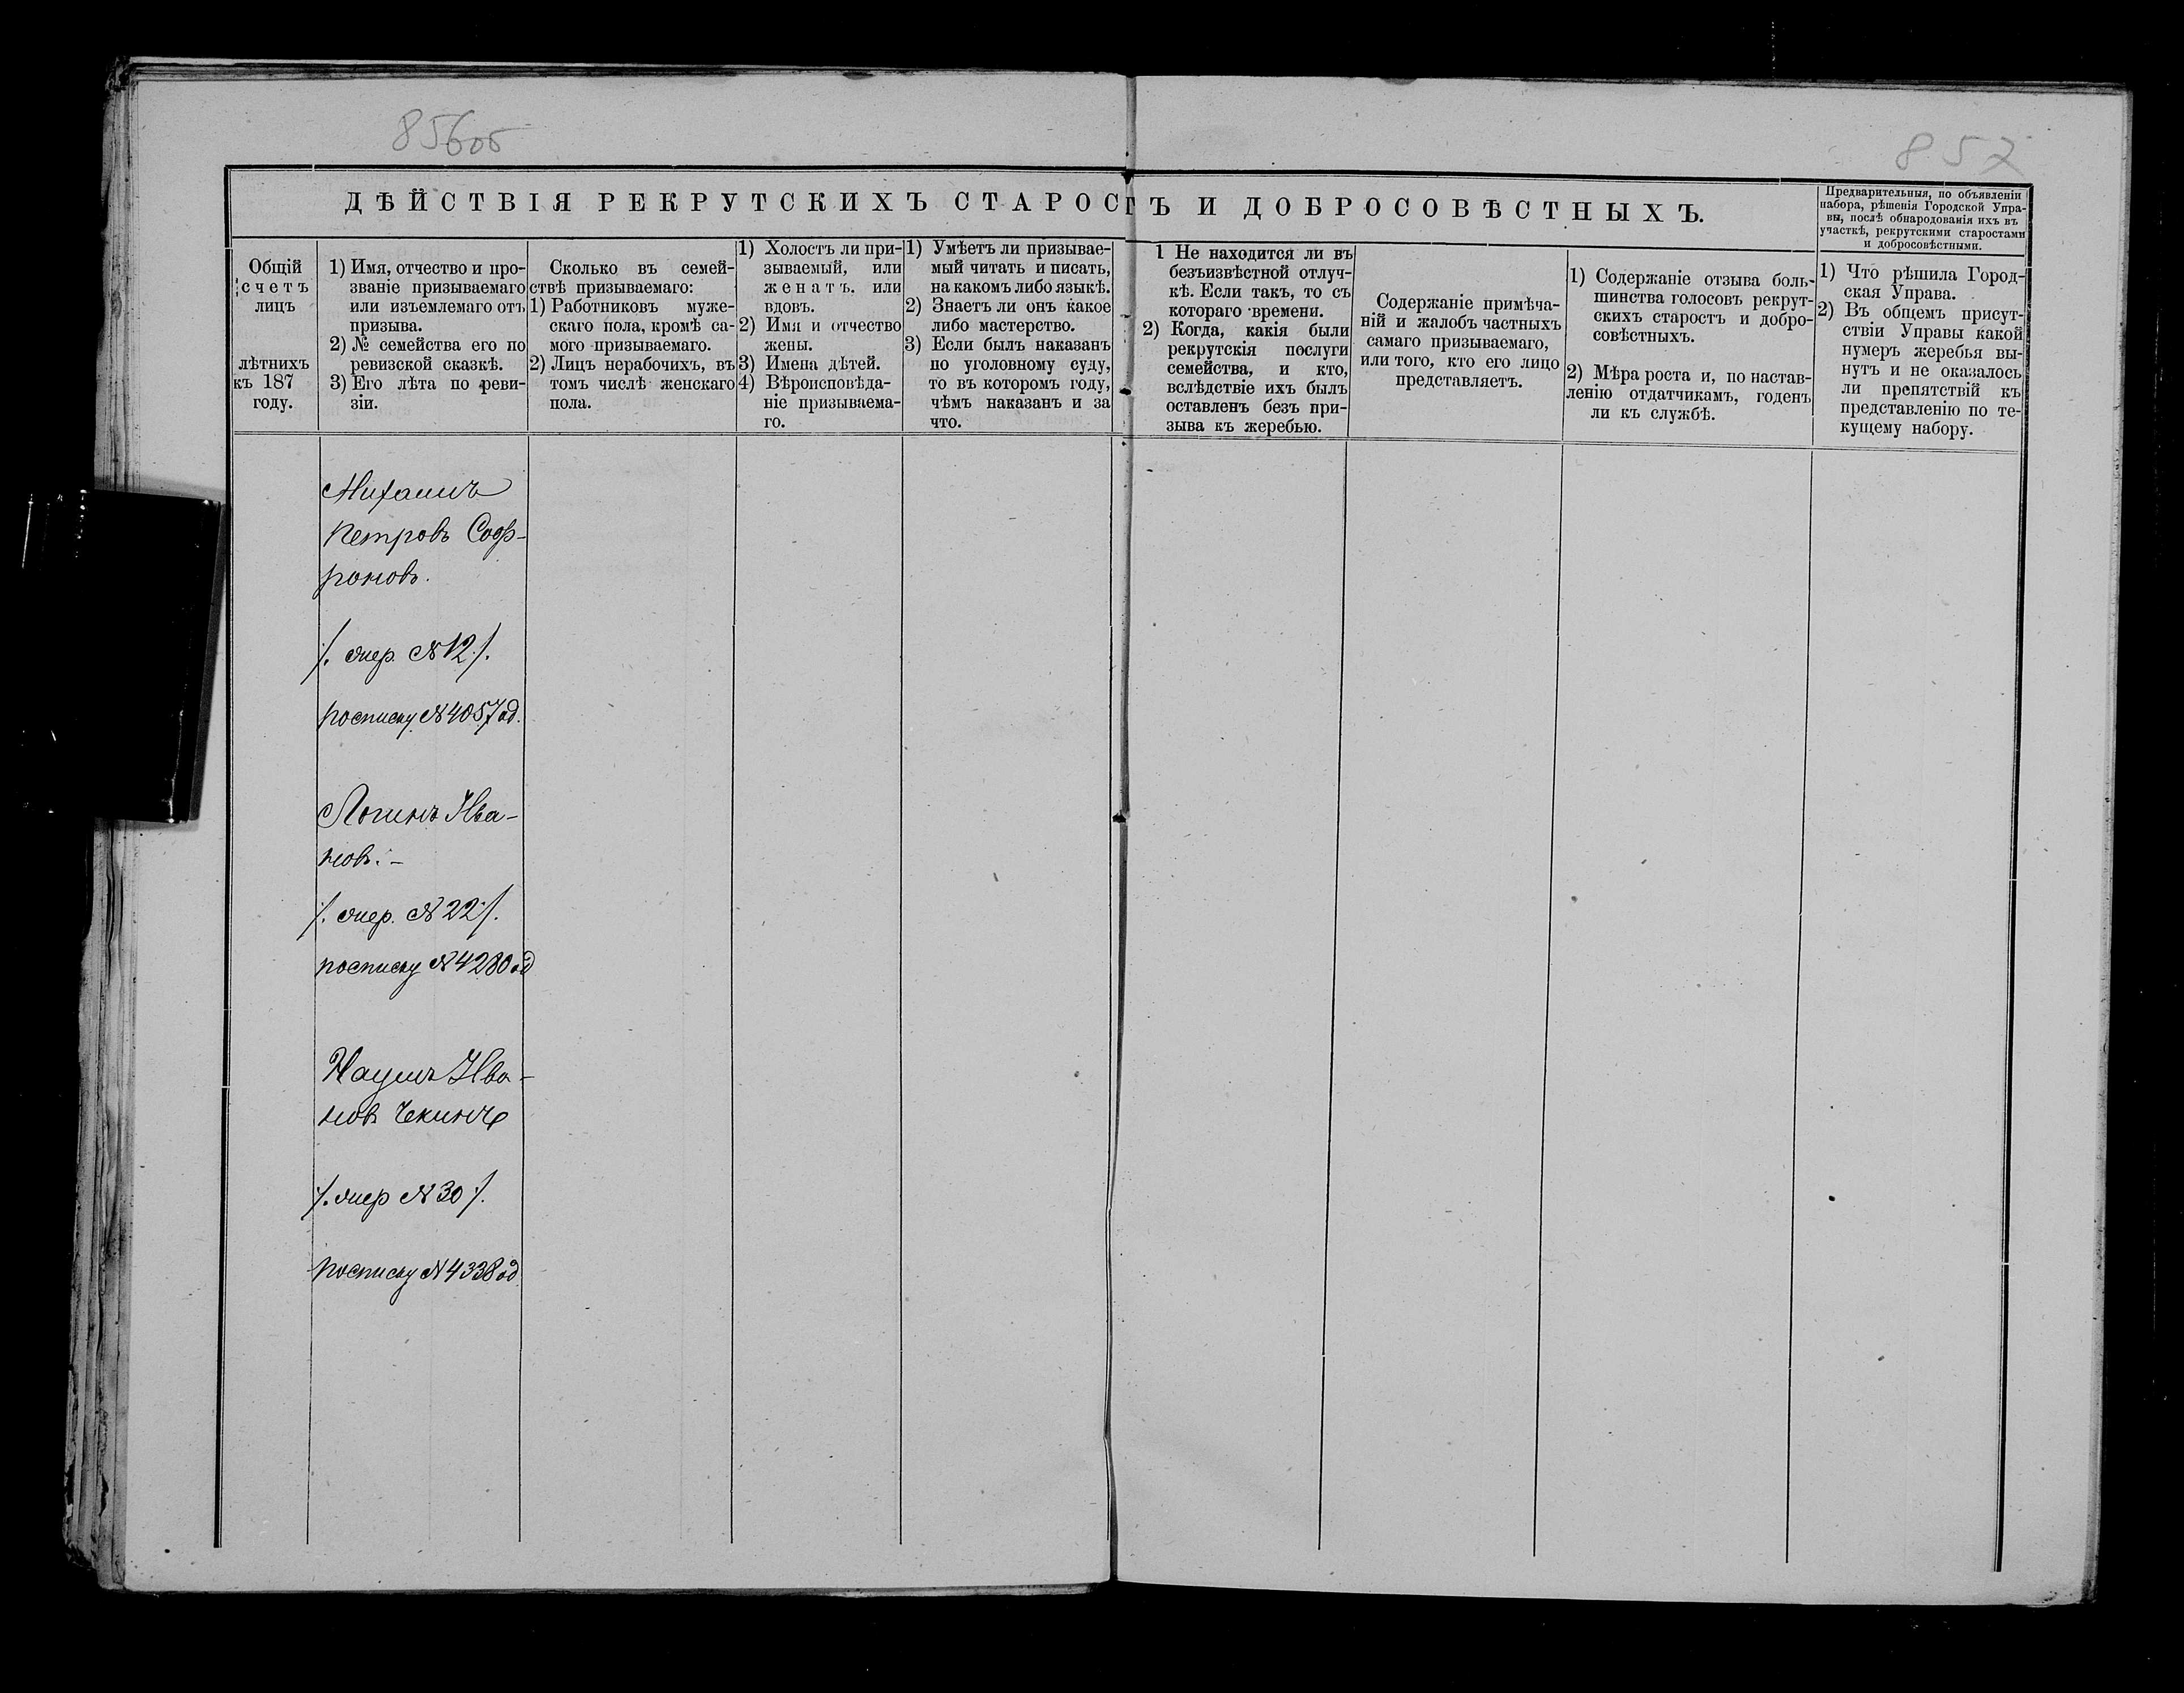 856об
852
ДѢЙСТВІЯ РЕКРУТСКИХЪ СТАРОСТЪ И ДОБРОСОВѢСТНЫХЪ.
Предварительныя, по объявленіи
набора, рѣшенія Городской Упра-
вы, послѣ обнародованія ихъ въ
участкѣ, рекрутскими старостами
и добросовѣстными.
Общій
счетъ
лицъ
лѣтнихъ
къ 187
году.
1) Имя, отчество и про-
званіе призываемаго
или изъемлемаго отъ
призыва.
2) № семейства его по
ревизской сказкѣ.
3) Его лѣта по реви-
зіи.
Сколько въ семей-
ствѣ призываемаго:
1) Работниковъ муже-
скаго пола, кромѣ са-
мого призываемаго.
2) Лицъ нерабочихъ, въ
томъ числѣ женскаго
пола.
1) Холостъ ли при-
зываемый, или
женатъ. или
вдовъ.
2) Имя и отчество
жены.
3) Имена дѣтей.
4) Вѣроисповѣда-
ніе призываема-
го.
1) Умѣетъ ли призывае-
мый читать и писать,
на какомъ либо языкѣ.
2) Знаетъ ли онъ какое
либо мастерство.
3) Если былъ наказанъ
по уголовному суду,
то въ которомъ году,
чѣмъ наказанъ и за
что.
1 Не находится ли въ
безъизвѣстной отлуч-
кѣ. Если такъ, то съ
котораго времени.
2) Когда, какія были
рекрутскія послуги
семейства, и кто,
вслѣдствіе ихъ былъ
оставленъ безъ при-
зыва къ жеребью.
Содержаніе примѣча-
ній и жалобъ частныхъ
самаго призываемаго,
или того, кто его лицо
представляетъ.
1) Содержаніе отзыва боль-
шинства голосовъ рекрут-
скихъ старостъ и добро-
совѣстныхъ.
2) Мѣра роста и, по настав-
ленію отдатчикамъ, годенъ
ли къ службѣ.
1) Что рѣшила Город-
ская Управа.
2) Въ общемъ присут-
ствіи Управы какой
нумеръ жеребья вы-
нутъ и не оказалось
ли препятствій къ
представленію по те-
кущему набору.
Михаилъ
Петровъ Соф-
роновъ.
/. жер. № 12 /.
росписку № 4057 об.
Логинъ Ива-
новъ. –
/. жер. № 22 /.
росписку № 4280 об
Наумъ Ива-
новъ Чекинъ
/. жер № 30 /.
росписку № 4338 об